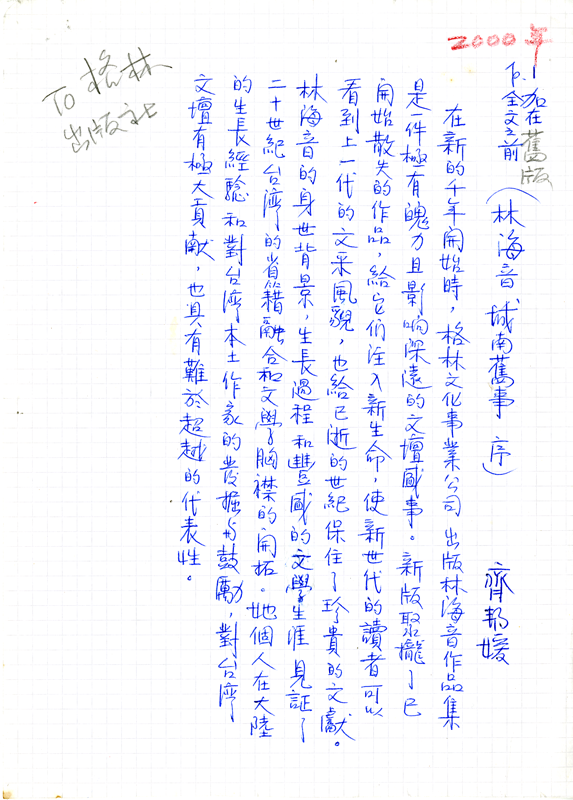 2000年
To 格林
出版社
下.1 加在舊版
全文之前
(林海音 城南舊事 序) 齊邦媛
在新的千年開始時，格林文化事業公司出版林海音作品集
是一件極有魄力且影响深遠的文壇盛事。新版聚攏了已
開始散失的作品，給它们注入新生命，使新世代的讀者可以
看到上一代的文采風貌，也給已逝的世紀保住了珍貴的文獻。
林海音的身世背景，生長過程和豐盛的文學生涯見証了
二十世紀台灣的省籍融合和文學胸襟的開拓。她個人在大陸
的生長經驗和對台灣本土作家的發掘与鼓勵，對台灣
文壇有極大貢献，也具有難於超越的代表性。